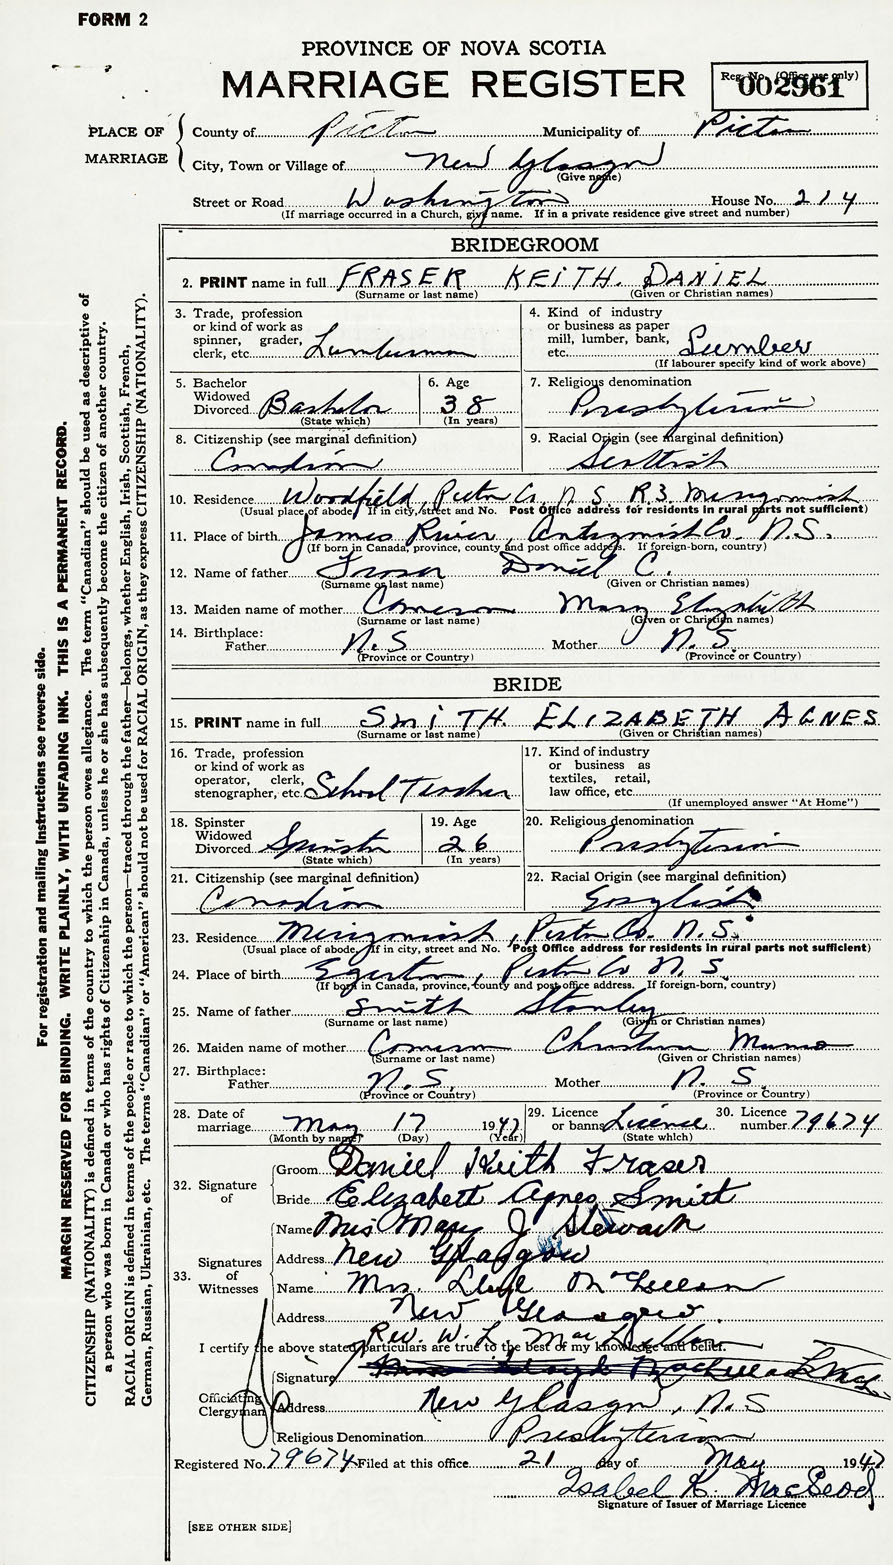 FORM 2
PROVINCE OF NOVA SCOTIA
MARRIAGE REGISTER
Reg. No. (Office use only)
002961
PLACE OF MARRIAGE
County of Pictou Municipality of Pictou
City, Town or Village of New Glasgow
(Give name)
Street or Road Washington House No. 214
(If marriage occurred in a Church, give name. If in a private residence give street and number)
BRIDEGROOM
2. PRINT name in full FRASER KEITH. DANIEL
(Surname or last name) (Given or Christian names)
3. Trade, profession or kind of work as spinner, grader, clerk, etc. Lumberman
4. Kind of industry or business as paper mill, lumber, bank, etc. Lumber
(If labourer specify kind of work above)
5. Bachelor Widowed Divorced Bachelor
(State which)
6. Age 38
(In years)
7. Religious denomination
Presbyterian
8. Citizenship (see marginal definition)
Canadian
9. Racial Origin (see marginal definition)
Scottish
10. Residence Woodfield, Pictou Co. N S R.3. Merigomish
(Usual place of abode. If in city, street and No. Post Office address for residents in rural parts not sufficient)
11. Place of birth James River, Antigonish Co. N.S.
(If born in Canada, province, county and post office address. If foreign-born, country)
12. Name of father Fraser Daniel C.
(Surname or last name) (Given or Christian names)
13. Maiden name of mother Cameron Mary Elizabeth
(Surname or last name) (Given or Christian names)
14. Birthplace:
Father N.S Mother N.S.
(Province or Country) (Province or Country)
BRIDE
15. PRINT name in full SMITH. ELIZABETH AGNES
(Surname or last name) (Given or Christian names)
16. Trade, profession or kind of work as operator, clerk, stenographer, etc. School Teacher
17. Kind of industry or business as textiles, retail, law office, etc.
(If unemployed answer "At Home")
18. Spinster Widowed Divorced Spinster
(State which)
19. Age 26
(In years)
20. Religious denomination
Presbyterian
21. Citizenship (see marginal definition)
Canadian
22. Racial Origin (see marginal definition)
English
23. Residence Merigomish, Pictou Co. N.S.
(Usual place of abode. If in city, street and No. Post Office address for residents in rural parts not sufficient)
24. Place of birth Egerton, Pictou Co N.S.
(If born in Canada, province, county and post office address. If foreign-born, country)
25. Name of father Smith Stanley
(Surname or last name) (Given or Christian names)
26. Maiden name of mother Cameron Christina Munro
(Surname or last name) (Given or Christian names)
27. Birthplace:
Father N.S. Mother N.S.
(Province or Country) (Province or Country)
28. Date of marriage May 17 1947
(Month by name) (Day) (Year)
29. Licence or banns Licence
(State which)
30. Licence number 79674
32. Signature of
Groom Daniel Keith Fraser
Bride Elizabeth Agnes Smith
33. Signatures of Witnesses
Name Mrs Mary J Stewart
Address New Glasgow
Name Mrs. Lloyd McLellan
Address New Glasgow
Rev. W. L. MacLellan
I certify the above stated particulars are true to the best of my knowledge and belief.
Officiating Clergyman
Signature
Address New Glasgow, N.S
Religious Denomination Presbyterian
Registered No. 79674 Filed at this office 21 day of May 1947
Isabel K. MacLeod
Signature of Issuer of Marriage Licence
[SEE OTHER SIDE]
For registration and mailing instructions see reverse side.
MARGIN RESERVED FOR BINDING. WRITE PLAINLY, WITH UNFADING INK. THIS IS A PERMANENT RECORD.
CITIZENSHIP (NATIONALITY) is defined in terms of the country to which the person owes allegiance. The term "Canadian" should be used as descriptive of
a person who was born in Canada or who has rights of Citizenship in Canada, unless he or she has subsequently become the citizen of another country.
RACIAL ORIGIN is defined in terms of the people or race to which the person—traced through the father—belongs, whether English, Irish, Scottish, French,
German, Russian, Ukrainian, etc. The terms "Canadian" or "American" should not be used for RACIAL ORIGIN, as they express CITIZENSHIP (NATIONALITY).